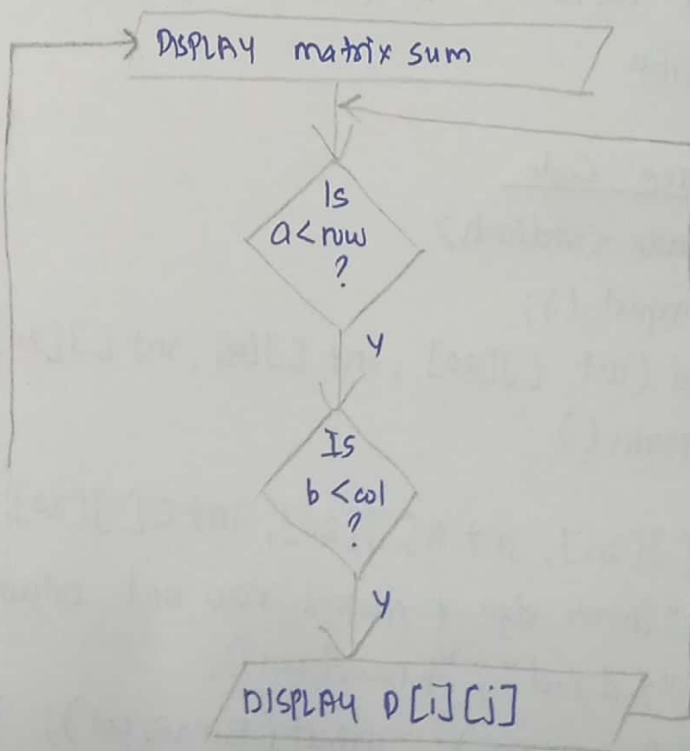 DISPLAY matrix sum
Is
a < row
?
Y
Is
b < col
?
Y
DISPLAY D[i][j]